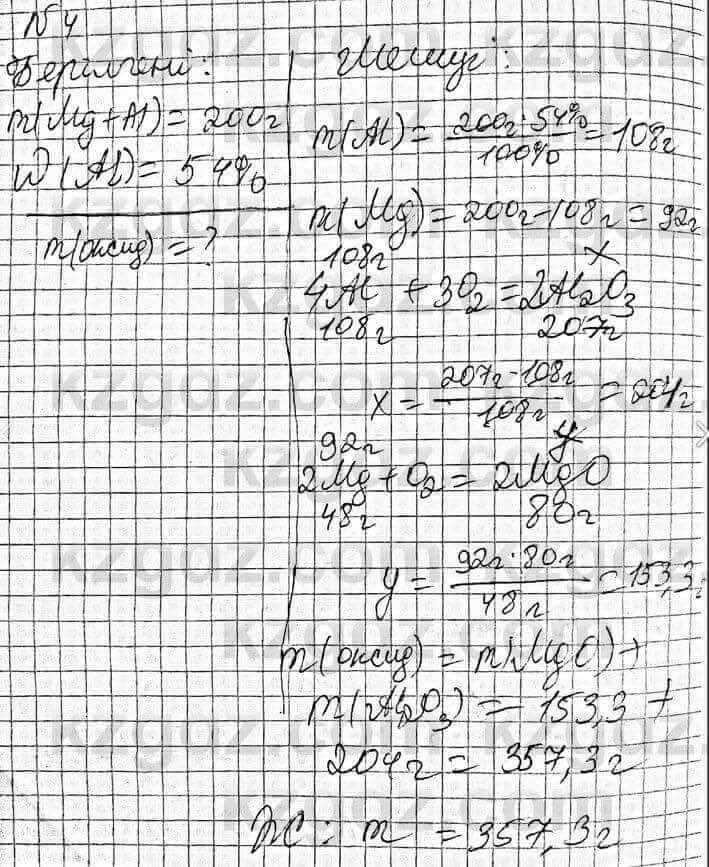 № 4
Берілгені:
m(Mg+Al) = 200г
W(Al) = 54%
m(оксид) = ?
Шешуі:
m(Al) = 200г·54% / 100% = 108г
m(Mg) = 200г-108г = 92г
108г x
4Al + 3O2 = 2Al2O3
108г 207г
x = 207г·108г / 108г = 204г
92г y
2Mg + O2 = 2MgO
48г 80г
y = 92г·80г / 48г = 153,3г
m(оксид) = m(MgO) +
m(Al2O3) = 153,3 +
204г = 357,3г
ЖС: m = 357,3г
kzgdz.com